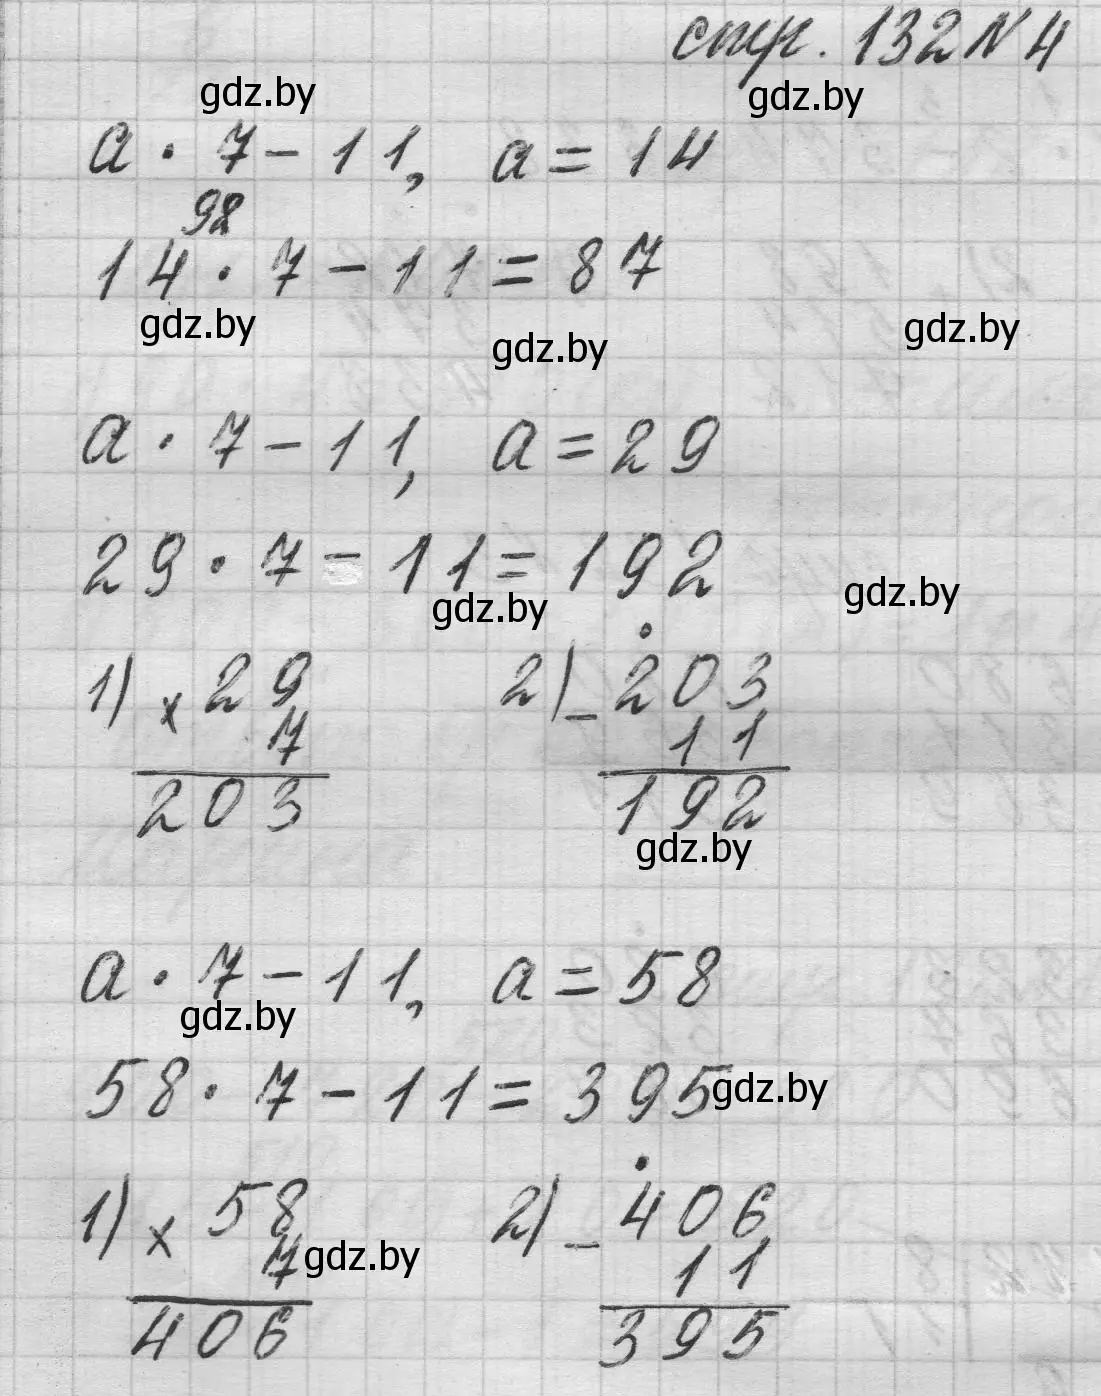 стр. 132 № 4
gdz.by gdz.by
a · 7 - 11, a = 14
98
14 · 7 - 11 = 87
gdz.by gdz.by gdz.by
a · 7 - 11, a = 29
29 · 7 - 11 = 192
gdz.by gdz.by
1) x 29 2) - 203
7 11
203 192
gdz.by
a · 7 - 11, a = 58
gdz.by
58 · 7 - 11 = 395
gdz.by
1) x 58 2) - 406
7 11
gdz.by
406 395